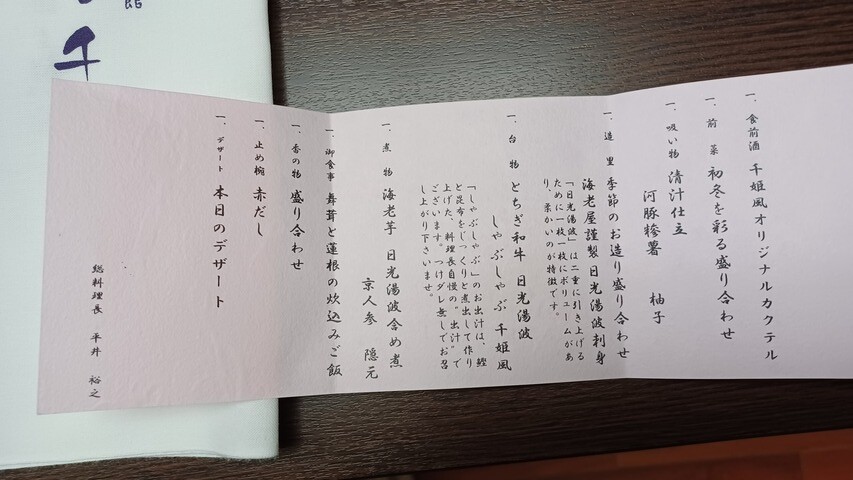 一、食前酒 千姫風オリジナルカクテル
一、前菜 初冬を彩る盛り合わせ
一、吸い物 清汁仕立
河豚糝薯 柚子
一、造里 季節のお造り盛り合わせ
海老屋謹製日光湯波刺身
「日光湯波」は二重に引き上げる
ために一枚一枚にボリュームがあ
り、柔かいのが特徴です。
一、台物 とちぎ和牛 日光湯波
しゃぶしゃぶ 千姫風
「しゃぶしゃぶ」のお出汁は、鰹
と昆布をじっくりと煮出して作り
上げた、料理長自慢の〝出汁〟で
ございます。つけダレ無しでお召
し上がり下さいませ。
一、煮物 海老芋 日光湯波含め煮
京人参 隠元
一、御食事 舞茸と蓮根の炊込みご飯
一、香の物 盛り合わせ
一、止め椀 赤だし
一、デザート 本日のデザート
総料理長 平井 裕之
千